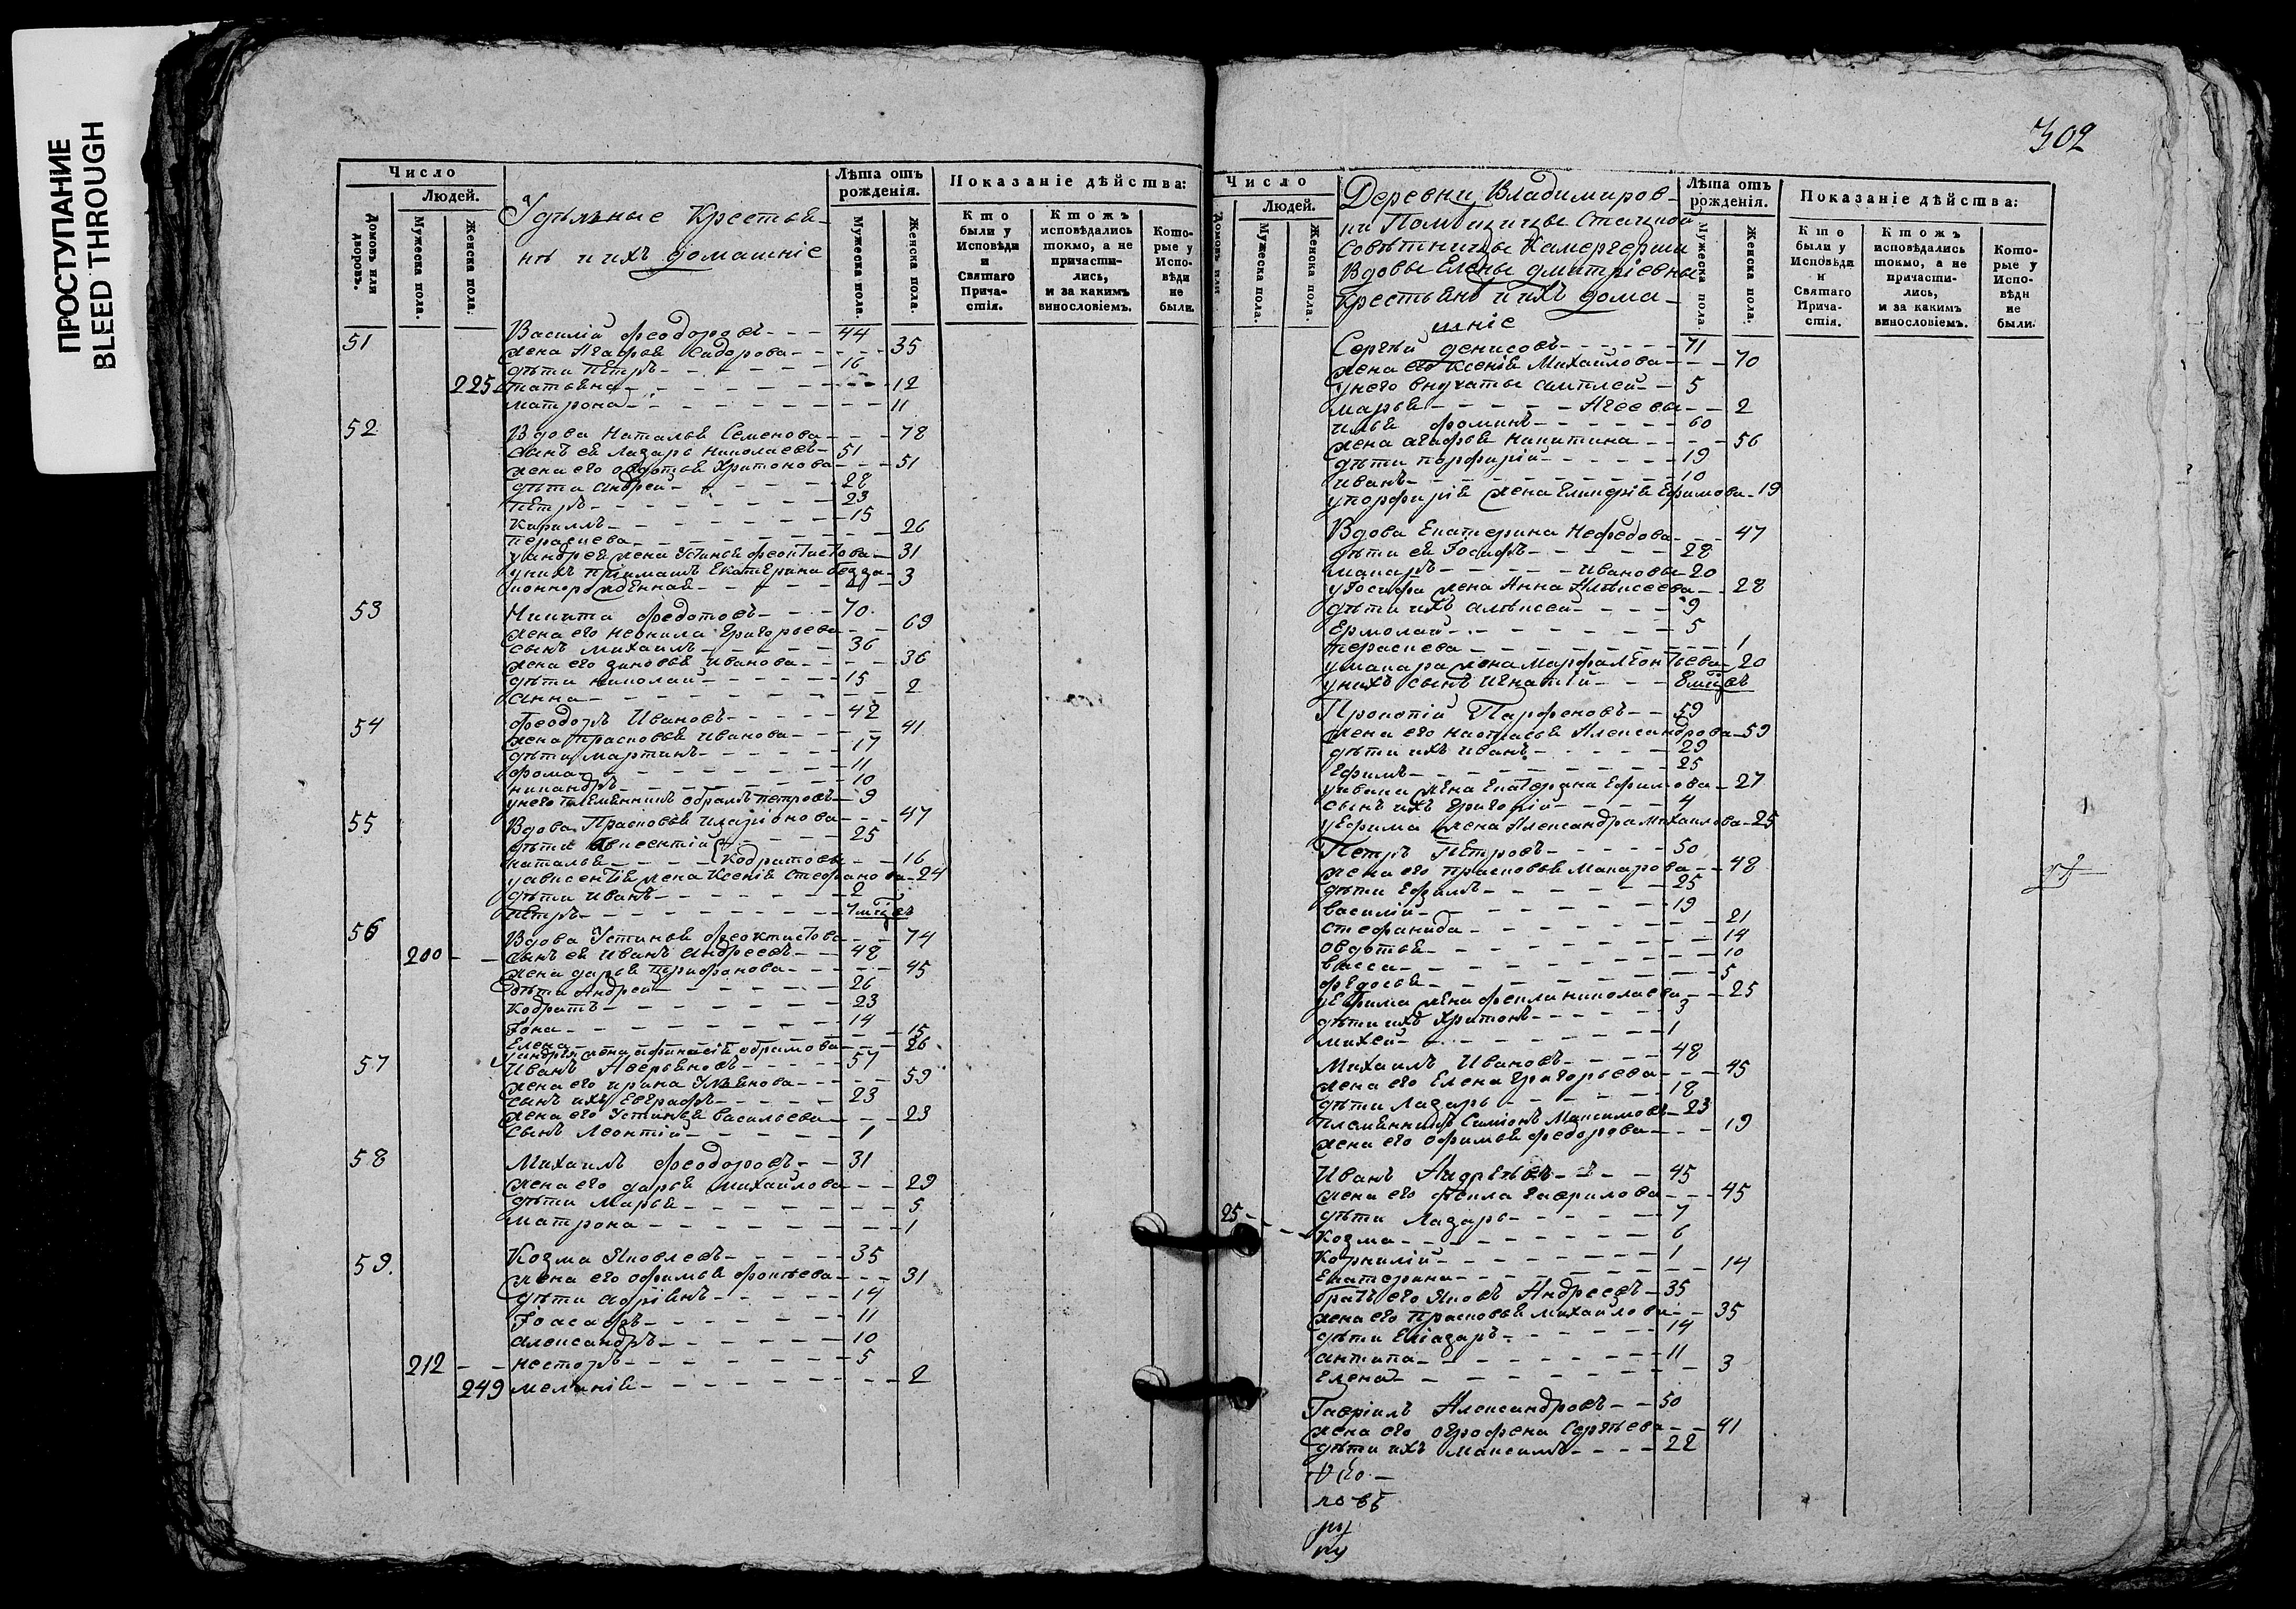 ПРОСТУПАНИЕ
BLEED THROUGH
Число
Людей.
Домовъ или дворовъ.
Мужеска пола.
Женска пола.
Удѣльные Крестья-
нѣ и ихъ домашніе
Лѣта отъ рожденія.
Мужеска пола.
Женска пола.
Показаніе дѣйства:
Кто были у Исповѣди и Святаго Прича-стія.
Ктожъ исповѣдались токмо, а не причасти-лись, и за какимъ винословіемъ.
Кото-рые у Испо-вѣди не были.
51 Василій Феодоровъ 44
жена Агафья Сидорова 35
дѣти Петръ 16
225 татьяна 12
матрона 11
52 Вдова Наталья Семенова 78
сынъ ея Лазарь Николаевъ 51
жена его овдотья Хритонова 51
дѣти андрей 28
Петръ 23
Кириллъ 15
Параскева 26
у андрея жена Устинья феоктистова 31
у нихъ пріимашъ Екатерина 3
53 Никита Федотовъ 70
жена его неонила григорьева 69
сынъ михаилъ 36
жена его зиновья иванова 36
дѣти николай 15
анна 2
54 Феодоръ Ивановъ 42
жена прасковья иванова 41
дѣти мартинъ 17
фома 11
никандръ 10
у него племянникъ абрамъ петровъ 9
55 Вдова Прасковья иларіонова 47
дѣти Авксентій 25
наталья Кодратовы 16
у авксентія жена Ксенія Стефанова 24
дѣти иванъ 2
Петръ 7 мцъ
56 Вдова Устинья феоктистова 74
200 сынъ ея иванъ андреевъ 48
жена дарья трифонова 45
дѣти Андрей 26
Кодратъ 23
Іона 14
Елена 15
у андрея жена афанасія абрамова 26
57 Иванъ Аверьяновъ 57
жена его ирина Ульянова 59
сынъ ихъ Евграфъ 23
жена его Устинья васильева 23
сынъ Леонтій 1
58 Михаилъ Феодоровъ 31
жена его дарья михайлова 29
дѣти Марья 5
матрона 1
59. Козма Яковлевъ 35
жена его офимья фонтьева 31
дѣти адріянъ 14
Іоасафъ 11
александръ 10
212 несторъ 5
249 меланія 2
302
Число
Людей.
Домовъ или
Мужеска пола.
Женска пола.
Деревни Владимиров-
ки Помѣщицы Статской
Совѣтницы Камергерши
Вдовы Елены дмитріевны
крестьянѣ и ихъ дома-
шніе
Лѣта отъ рожденія.
Мужеска пола
Женска пола.
Показаніе дѣйства:
Кто были у Исповѣди и Святаго Прича-стія.
Ктожъ исповѣдались токмо, а не причасти-лись, и за какимъ винословіемъ.
Кото-рые у Испо-вѣди не были.
Сергѣй денисовъ 71
жена его Ксенія Михайлова 70
у него внучаты 5
марья Агеевы 2
илья фоминъ 60
жена агафья никитина 56
дѣти порфирій 19
иванъ 10
у порфирія жена Ефимова 19
Вдова Екатерина Нефедова 47
дѣти ея Іосифъ 28
макаръ ивановы 20
у Іосифа жена Анна Алѣксеева 28
дѣти ихъ алѣксей 9
Ермолай 5
Параскева 1
у макара жена Марфа леонтьева 20
у нихъ сынъ игнатій 8 мцъ
Прокопій Парфеновъ 59
жена его настасья Александрова 59
дѣти ихъ иванъ 29
Ефимъ 25
у ивана жена Екатерина Ефимова 27
сынъ ихъ григорій 4
у Ефима жена Александра михаилова 25
Петръ Петровъ 50
жена его прасковья Макарова 48
дѣти Ефимъ 25
василій 19
стефанида 21
овдотья 14
васса 10
федосья 5
у Ефима жена фекла николаева 25
дѣти ихъ Хритонъ 3
михей 1
Михаилъ Ивановъ 48
жена его Елена григорьева 45
дѣти Лазарь 18
племянникъ Симіонъ Максимовъ 23
жена его офимья федорова 19
Иванъ Андреевъ 45
жена его фекла гаврилова 45
25 дѣти Лазарь 7
Козма 6
Корнилій 1
Екатерина 14
братъ его Яковъ Андреевъ 35
жена его Прасковья михайлова 35
дѣти Еліазаръ 14
антипа 11
Елена 3
Гавріилъ Александровъ 50
жена его огрофена Сергѣева 41
дѣти ихъ максимъ 22